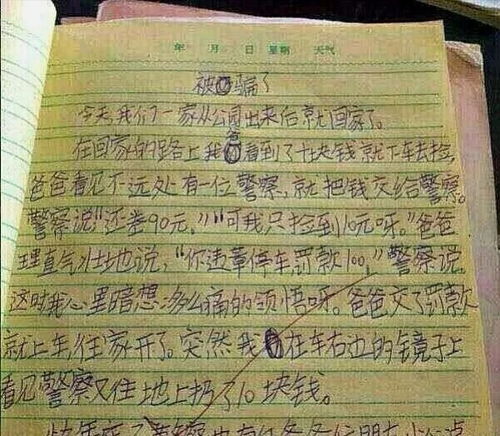 年 月 日 星期 天气
被骗了
今天我们一家从公园出来后就回家了。
在回家的路上我爸看到了十块钱就下车去捡,
爸爸看见不远处有一位警察,就把钱交给警察。
警察说“还差90元,”“可我只捡到10元呀。”爸爸
理直气壮地说,“你违章停车罚款100,”警察说
这时我心里暗想多么痛的领悟呀。爸爸交了罚款
就上车往家开了。突然我在车右边的镜子上
看见警察又往地上扔了10块钱。